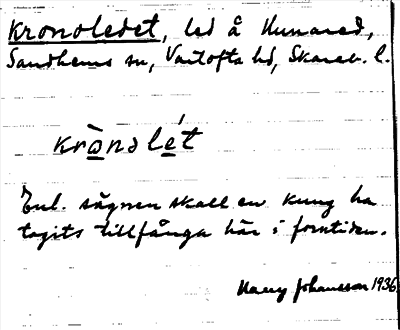 Kronoledet, led å Hunared,
Sandhems sn, Vartofta hd, Skarab. l.
krònolét
Enl. sägnen skall en kung ha
tagits tillfånga här i forntiden.
Harry Johansson 1936